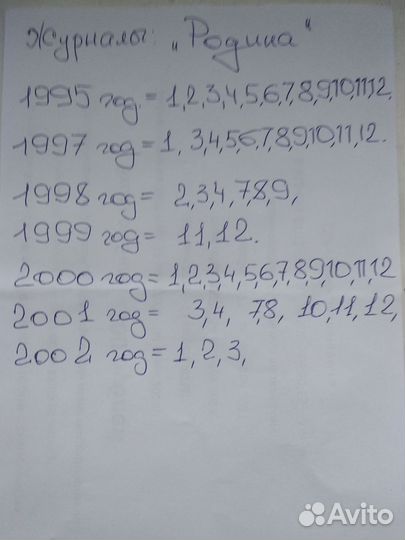 Журналы: „Родина"
1995 год = 1,2,3,4,5,6,7,8,9,10,11,12.
1997 год = 1, 3,4,5,6,7,8,9,10,11,12.
1998 год = 2,3,4, 7,8,9,
1999 год = 11,12.
2000 год = 1,2,3,4,5,6,7,8,9,10,11,12
2001 год = 3,4, 7,8, 10,11,12,
2002 год = 1,2,3,
Avito